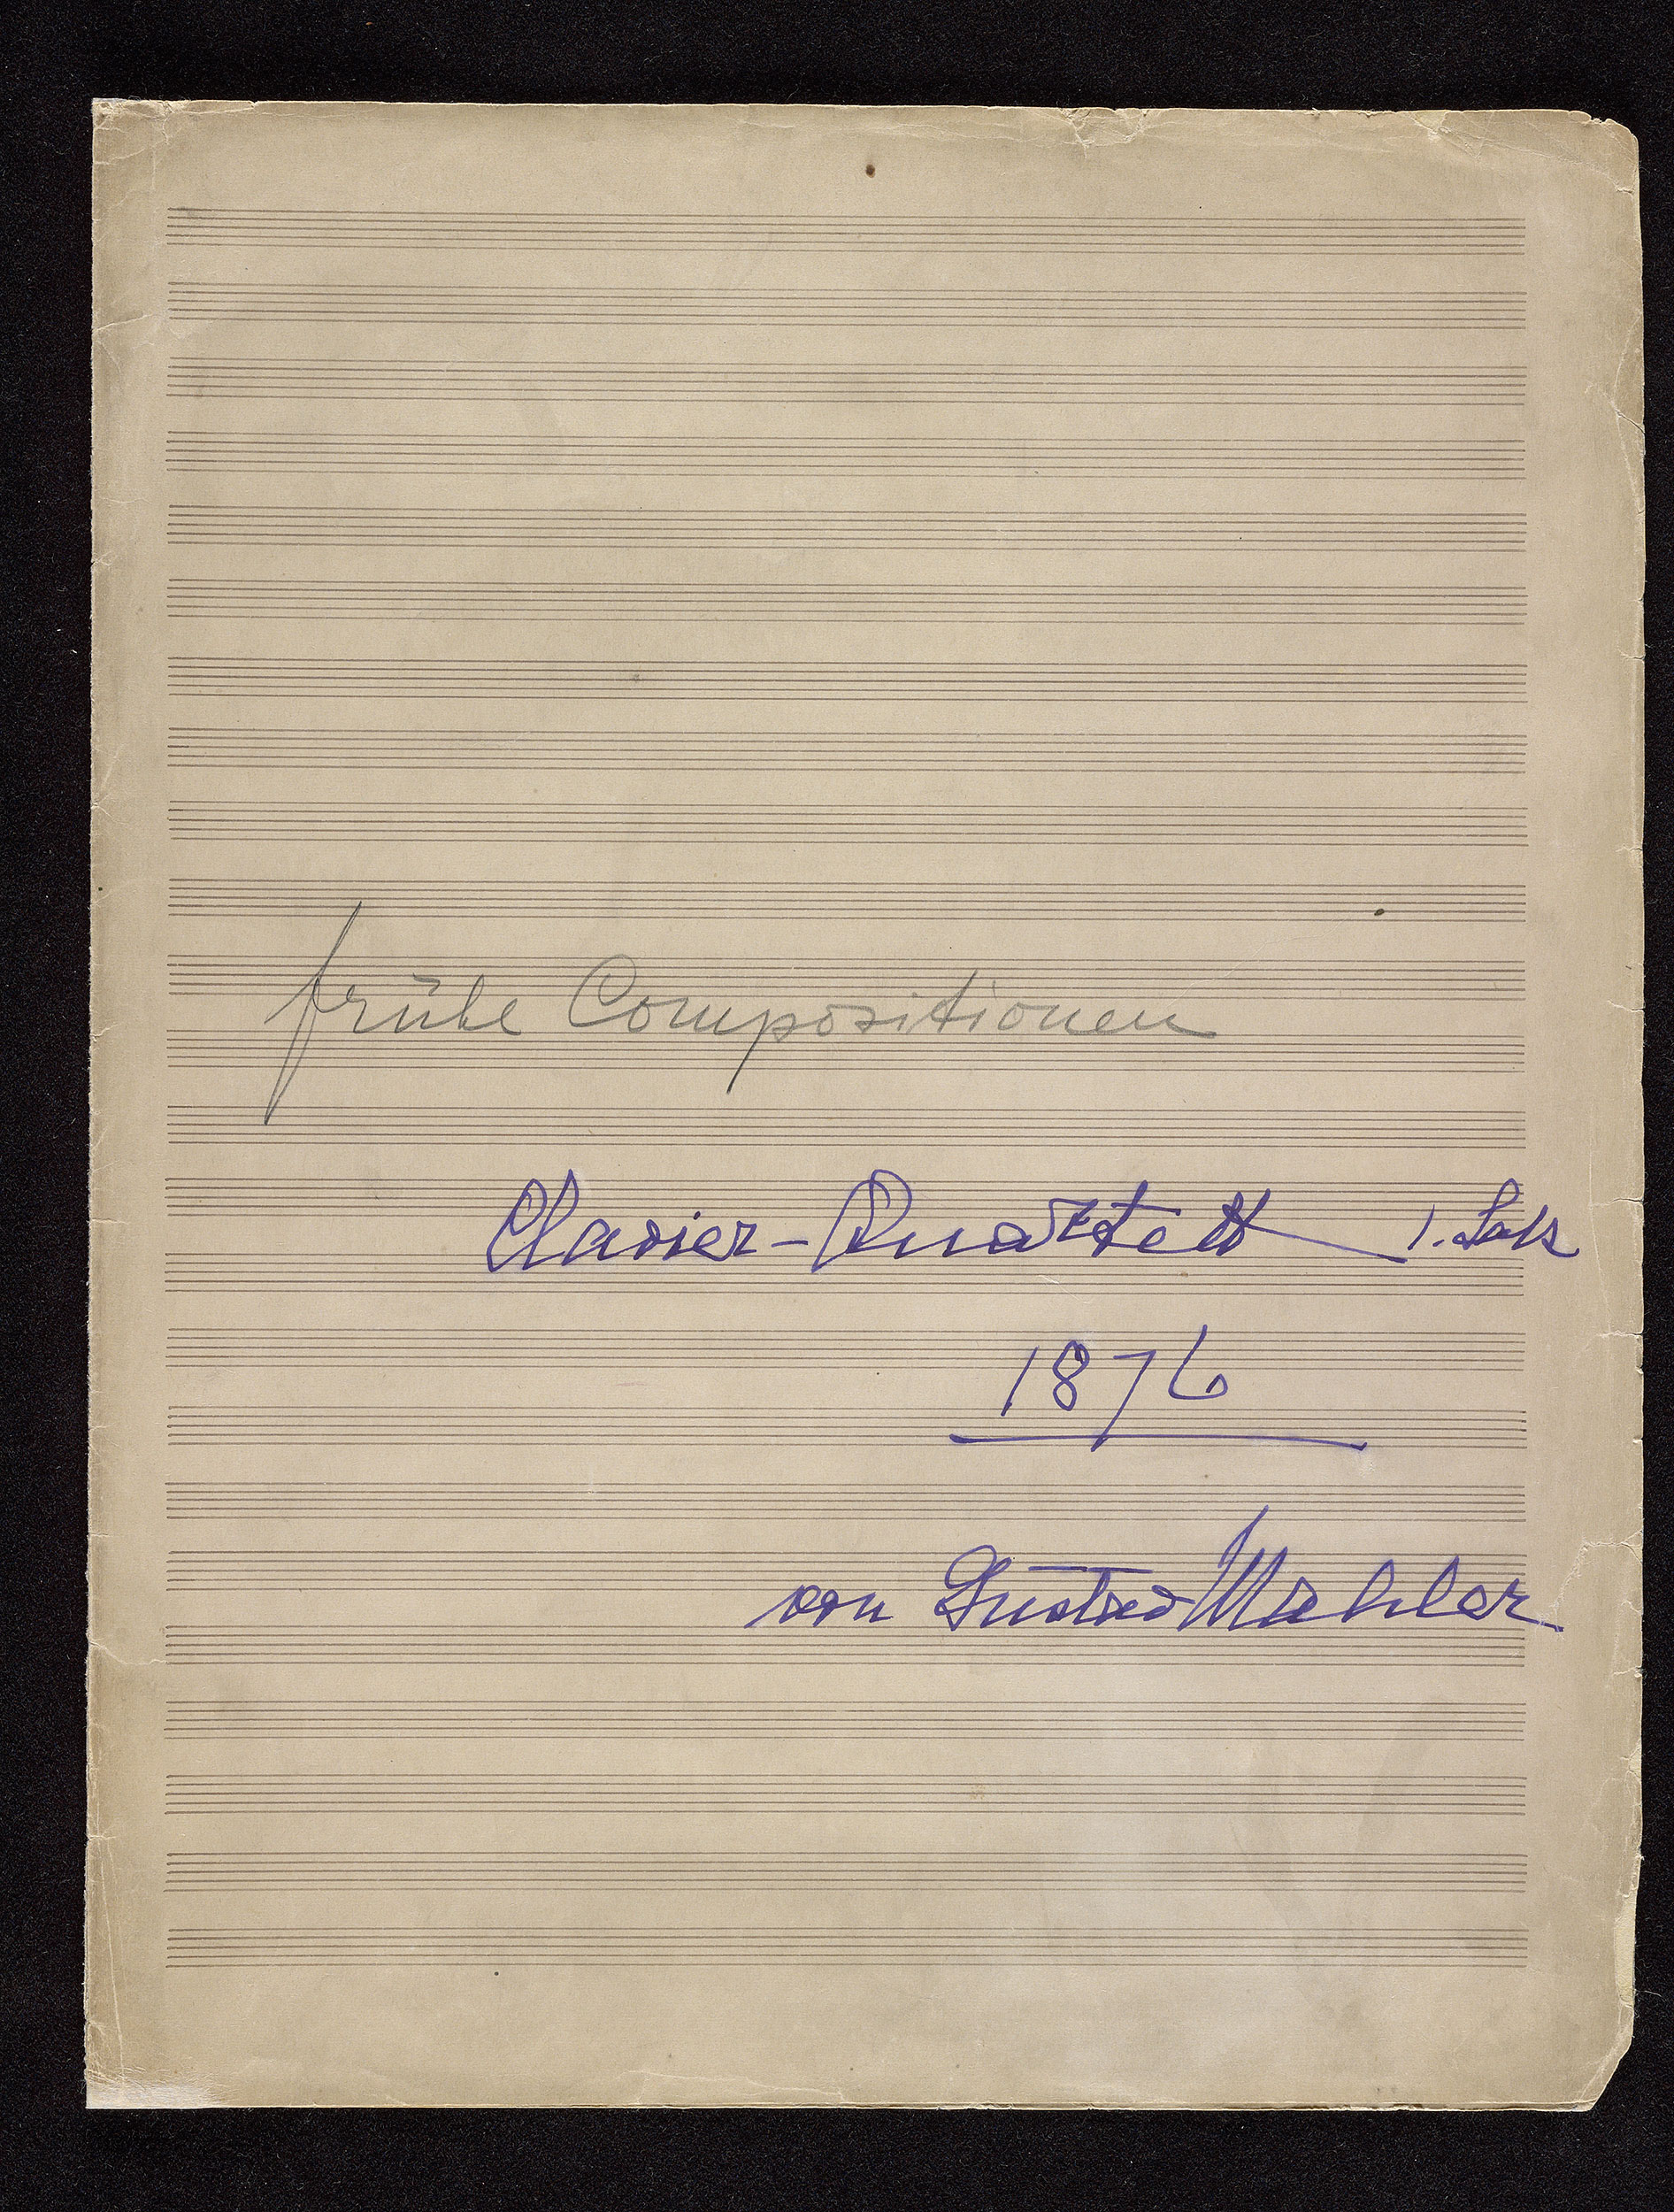 frühe Compositionen
Clavier-Quartett 1. Satz
1876
von Gustav Mahler